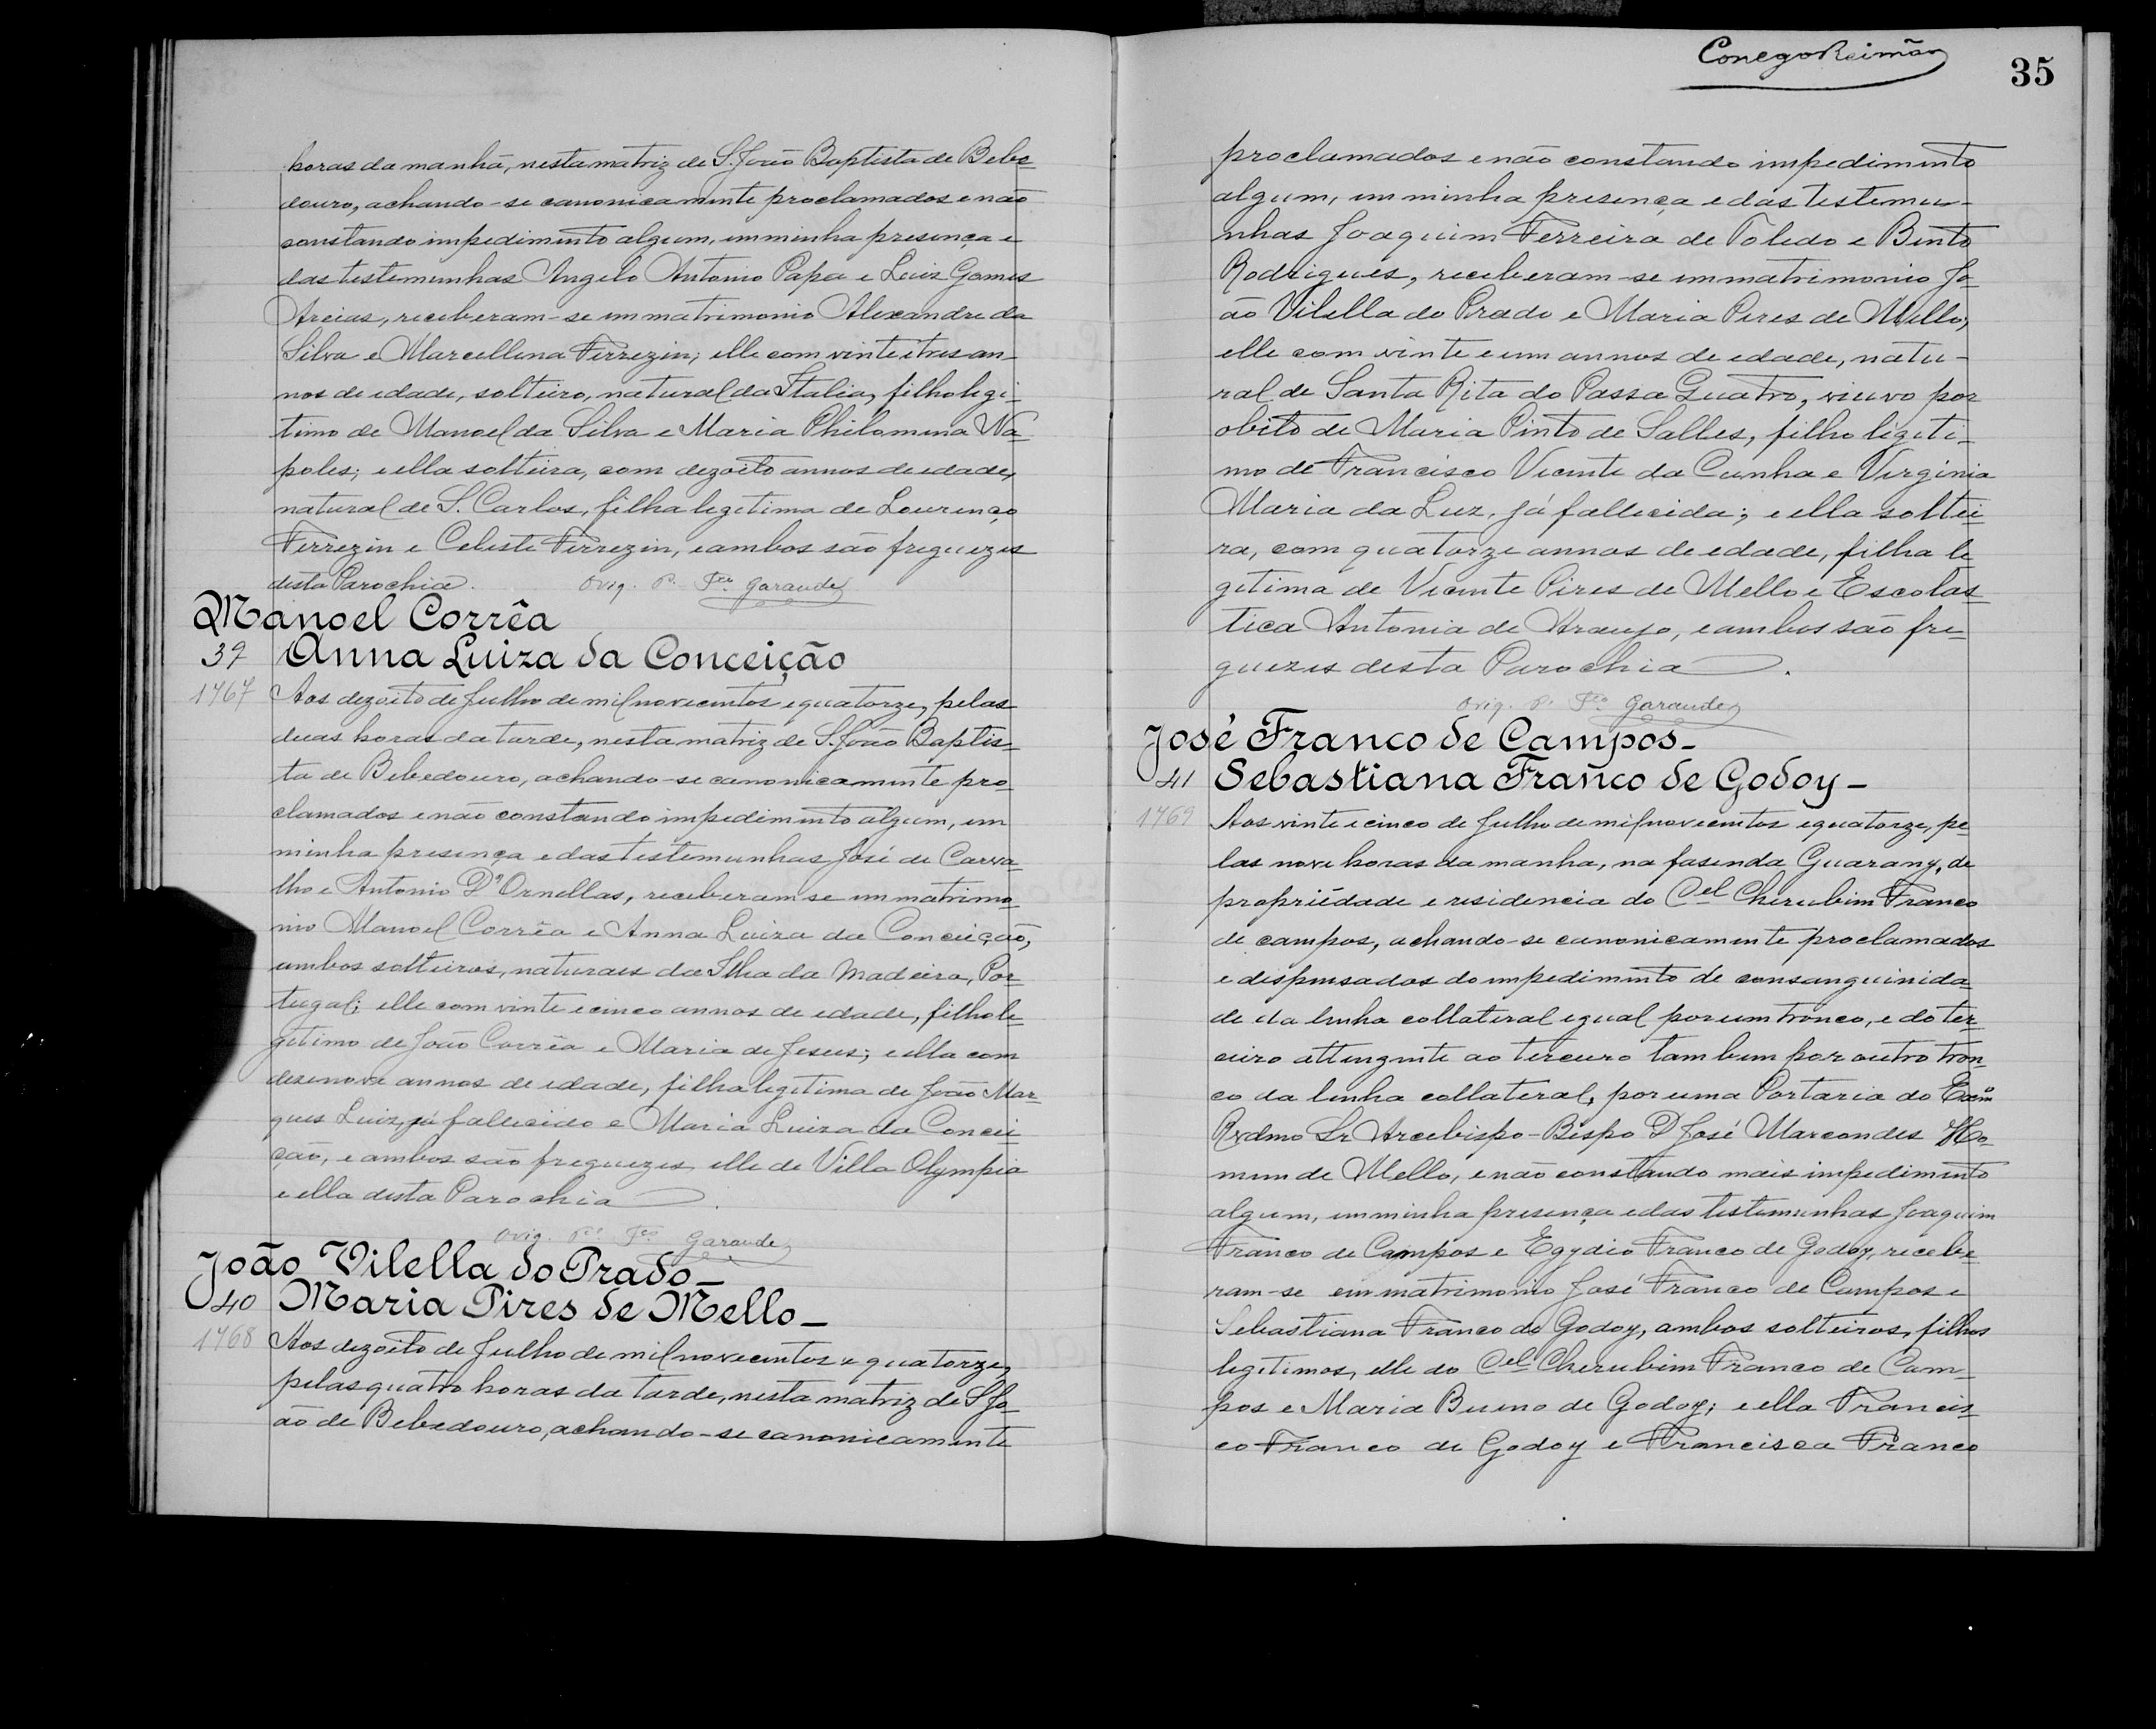 horas da manhã, nesta matriz de S. João Baptista de Bebe-
douro, achando-se canonicamente proclamados e não
constando impedimento algum, em minha presença e
das testemunhas Angelo Antonio Papa e Luiz Gomes
Areias, receberam-se em matrimonio Alexandre da
Silva e Marcellina Ferrezin; elle com vinte e tres an-
nos de edade, solteiro, natural da Italia, filho legi-
timo de Manoel da Silva e Maria Philomena Na-
poles; e ella solteira, com dezoito annos de edade,
natural de S. Carlos, filha legitima de Lourenço
Ferrezin e Celeste Ferrezin, e ambos são freguezes
desta Parochia. Orig. P. Fco Garaude
Manoel Corrêa
39 Anna Luiza da Conceição
1767 Aos dezoito de Julho de mil novecentos e quatorze, pelas
duas horas da tarde, nesta matriz de S. João Baptis-
ta de Bebedouro, achando-se canonicamente pro-
clamados e não constando impedimento algum, em
minha presença e das testemunhas José de Carva-
lho e Antonio D'Ornellas, receberam se em matrimo-
nio Manoel Corrêa e Anna Luiza da Conceição,
ambos solteiros, naturaes da Ilha da Madeira, Por-
tugal; elle com vinte e cinco annos de edade, filho le-
gitimo de João Corrêa e Maria de Jesus; e ella com
desenove annos de edade, filha legitima de João Mar-
ques Luiz, já fallecido e Maria Luiza da Concei-
ção, e ambos são freguezes, elle de Villa Olympia
e ella desta Parochia.
Orig. Pe. Fco Garaude
João Vilella do Prado_
40 Maria Pires de Mello_
1768 Aos dezoito de Julho de mil novecentos e quatorze,
pelas quatro horas da tarde, nesta matriz de S. Jo-
ão de Bebedouro, achando-se canonicamente
Conego Reimão
35
proclamados e não constando impedimento
algum, em minha presença e das testemu-
nhas Joaquim Ferreira de Toledo e Bento
Rodrigues, receberam-se em matrimonio Jo-
ão Vilella do Prado e Maria Pires de Mello;
elle com vinte e um annos de edade, natu-
ral de Santa Rita do Passa Quatro, viuvo por
obito de Maria Pinto de Salles, filho legiti-
mo de Francisco Vicente da Cunha e Virginia
Maria da Luz, já fallecida; e ella soltei-
ra, com quatorze annos de edade, filha le-
gitima de Vicente Pires de Mello e Escolas-
tica Antonia de Araujo, e ambos são fre-
guezes desta Parochia.
Orig. P. Fco Garaude
José Franco de Campos_
41 Sebastiana Franco de Godoy_
1769 Aos vinte e cinco de Julho de mil novecentos e quatorze, pe-
las nove horas da manha, na fasenda Guarany, de
propriédade e residencia do Cel Cherubim Franco
de campos, achando-se canonicamente proclamados
e dispensados do impedimento de consanguinida-
de da linha collateral egual por um tronco, e do ter-
ceiro attengente ao terceiro tambem por outro tron-
co da linha collateral, por uma Portaria do Exmo
Rvdmo Sr Arcebispo-Bispo D José Marcondes Ho-
mem de Mello, e não constando mais impedimento
algum, em minha presença e das testemunhas Joaquim
Franco de Campos e Egydio Franco de Godoy, recebe-
ram-se em matrimonio José Franco de Campos e
Sebastiana Franco de Godoy, ambos solteiros, filhos
legitimos, elle do Cel Cherubim Franco de Cam-
pos e Maria Bueno de Godoy; e ella Francis-
co Franco de Godoy e Francisca Franco